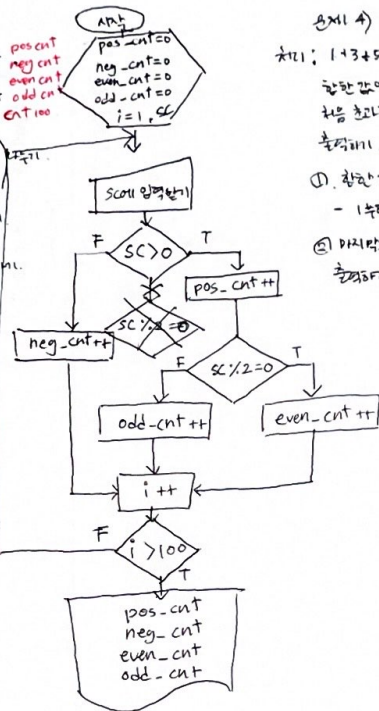 시작
pos_cnt=0
neg_cnt=0
even_cnt=0
odd_cnt=0
i=1, SC
pos cnt
neg cnt
even cnt
odd cnt
cnt 100
SC에 입력받기
SC>0
F
T
SC%2=0
pos_cnt++
neg_cnt++
SC%2=0
F
T
odd_cnt++
even_cnt++
i++
i>100
F
T
pos_cnt
neg_cnt
even_cnt
odd_cnt
문제 4)
처리: 1+3+5
합한 값이
처음 초과
출력하기
①. 합한
- 1부터
② 마지막
출력하